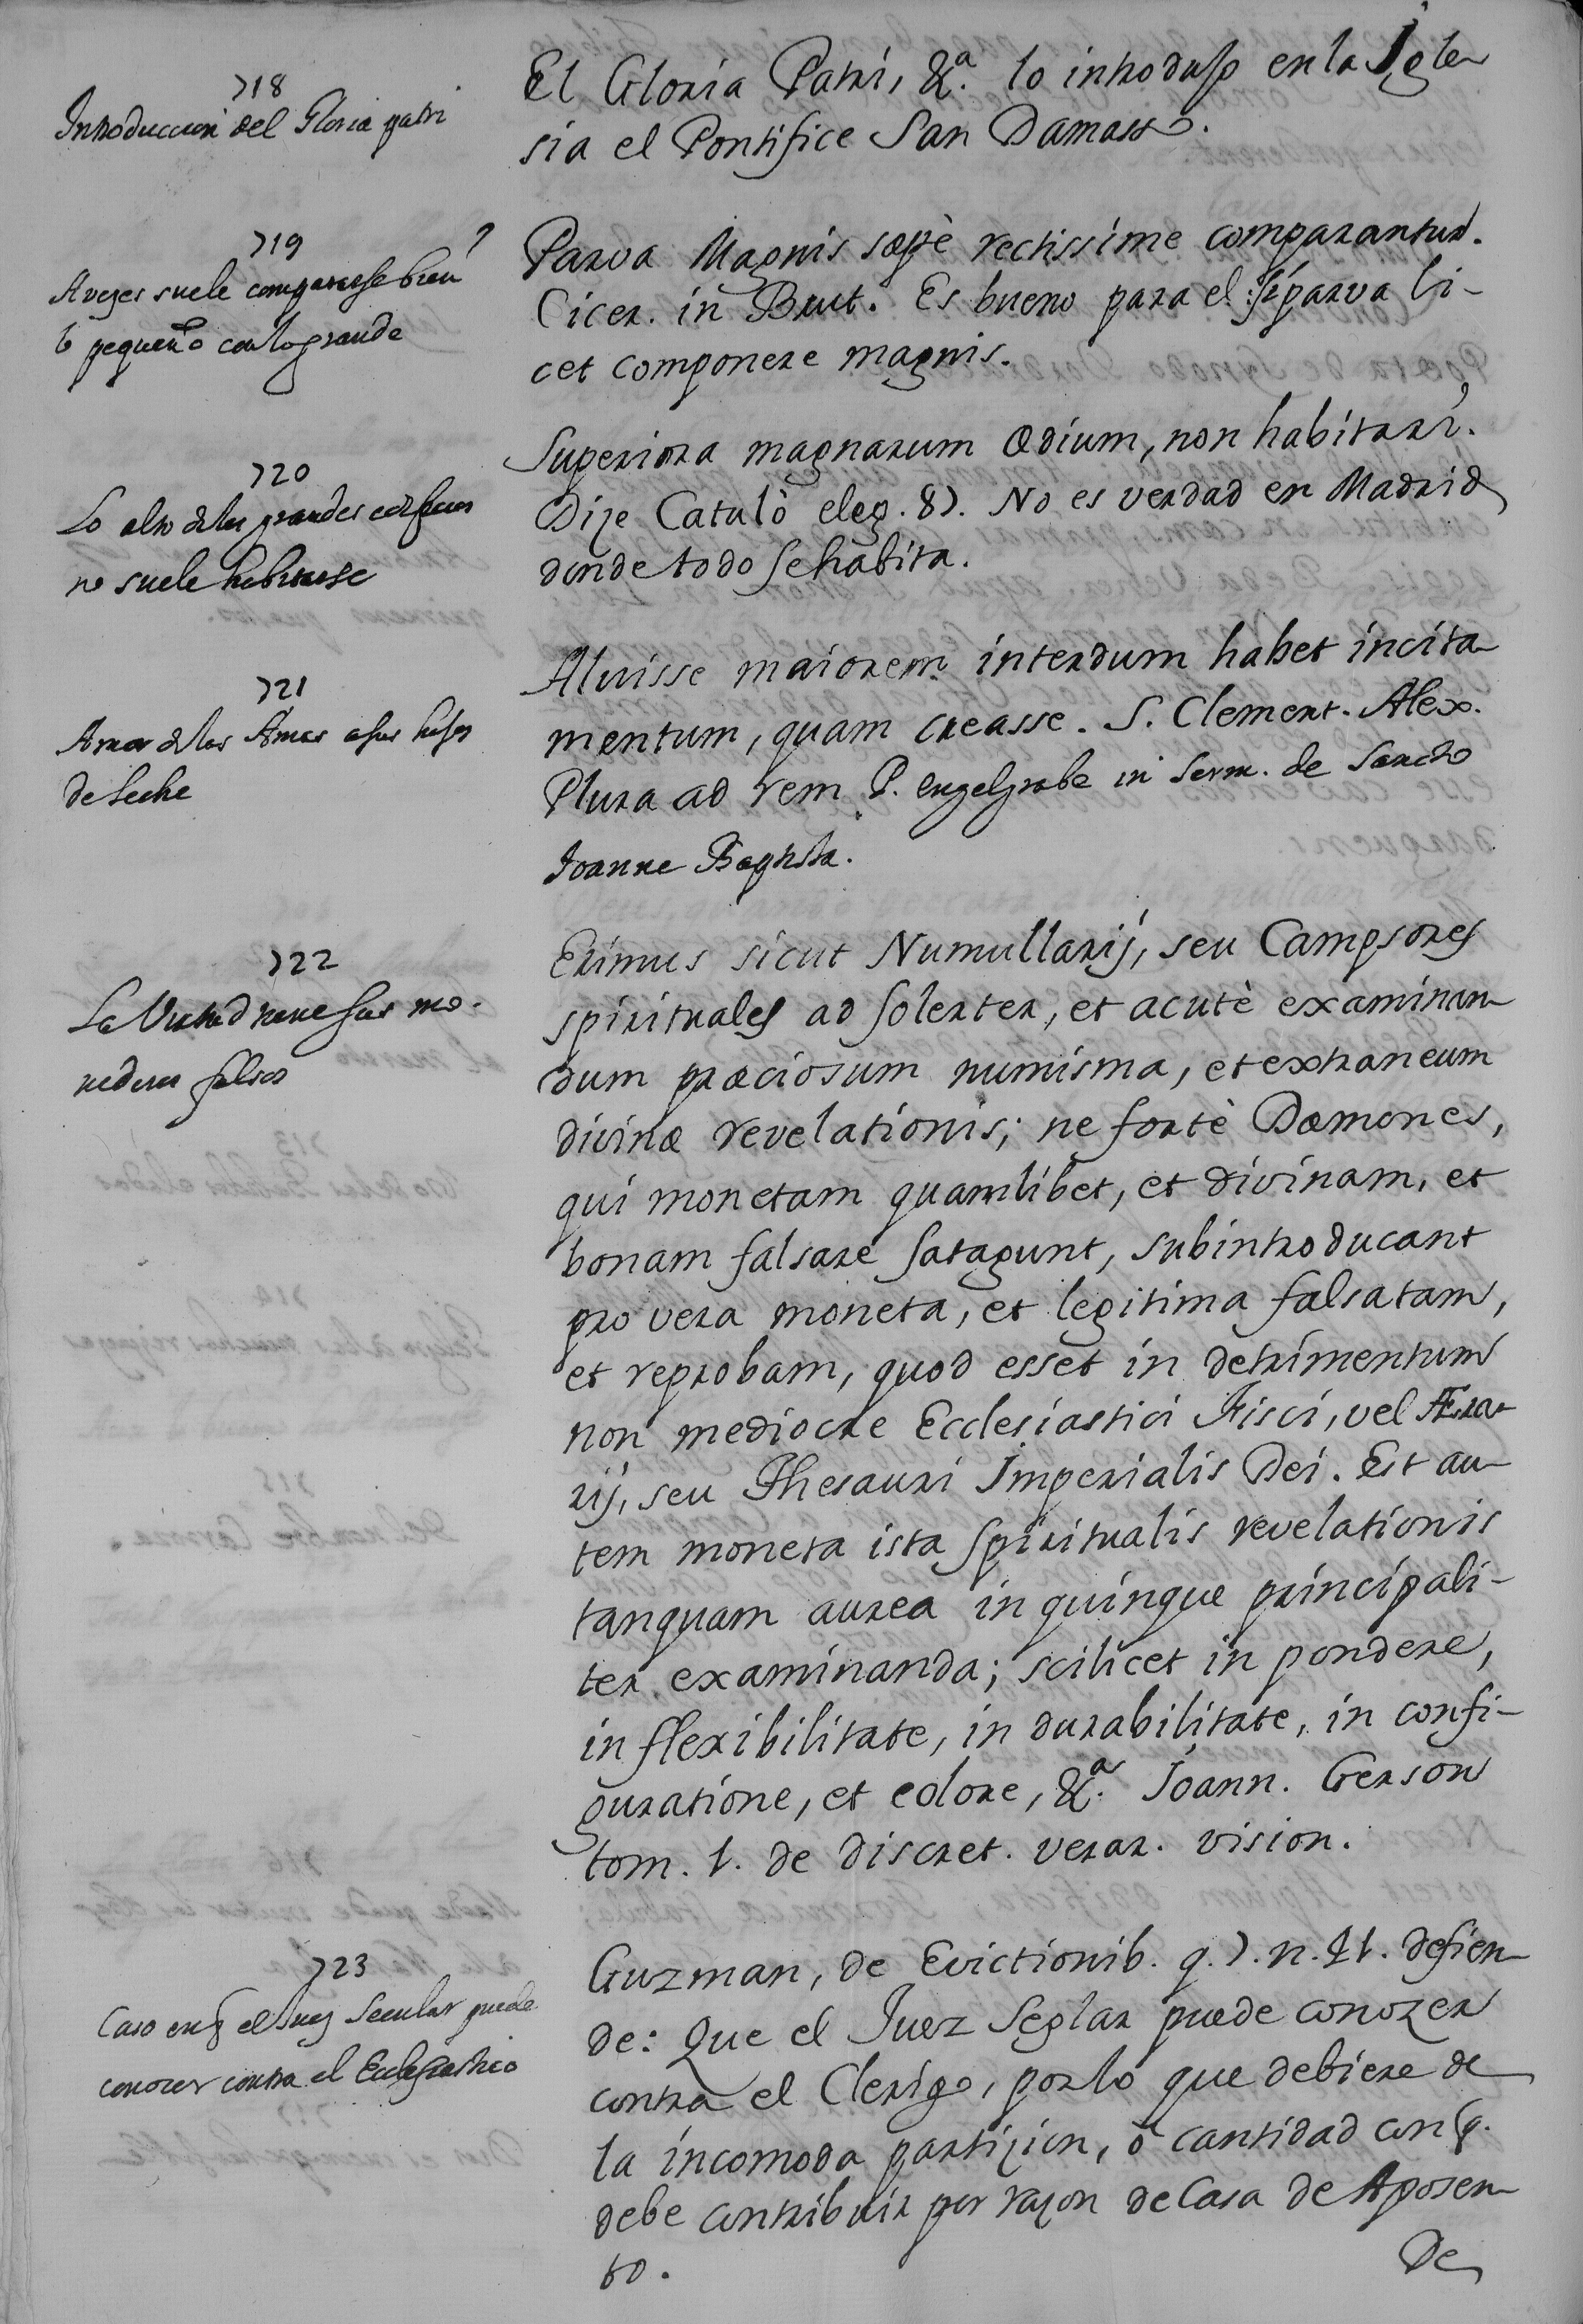 718
Introduccion del Gloria patri
El Gloria Patri, &a. lo introdujo en la Igle
sia el Pontifice San Damasso.
719
A vezes suele compararse bien
lo pequeño con lo grande
Parva Magnis sæpè rectissime comparantur.
Cicer. in Brut. Es bueno para el si parva li-
cet componere magnis.
720
Lo alto de los grandes edificios
no suele habitarse
Superiora magnarum Ædium, non habitari.
Dize Catulò eleg. 87. No es verdad en Madrid
donde todo se habita.
721
Amor de las Amas a sus hijos
de leche
Aluisse maiorem interdum habet incita-
mentum, quam creasse. S. Clement. Alex.
Plura ad rem P. engelgrabe in Serm. de Sancto
Joanne Baptista.
722
La Virtud tiene sus mo-
nederos falsos
Erimus sicut Numullarij, seu Campsores
spirituales ad solerter, et acutè examinan-
dum præciosum numisma, et extraneum
divinæ revelationis; ne fortè Dæmones,
qui monetam quamlibet, et divinam, et
bonam falsare satagunt, subintroducant
pro vera moneta, et legitima falsatam,
et reprobam, quod esset in detrimentum
non mediocre Ecclesiastici Fisci, vel Æra-
rij, seu Thesauri Imperialis Dei. Est au-
tem moneta ista spiritualis revelationis
tanquam aurea in quinque principali-
ter examinanda; scilicet in pondere,
in flexibilitate, in durabilitate, in confi-
guratione, et colore, &a. Joann. Gerson
tom. 1. de discret. verar. vision.
723
Caso en q el Juez Secular puede
conozer contra el Ecclesiastico
Guzman, de Evictionib. q. 7. n. 21. defien-
de: Que el Juez Seglar puede conozer
contra el Clerigo, por lo que debiere de
la incomoda partizion, ò cantidad con q.
debe contribuir por razon de Casa de Aposen-
to.
De